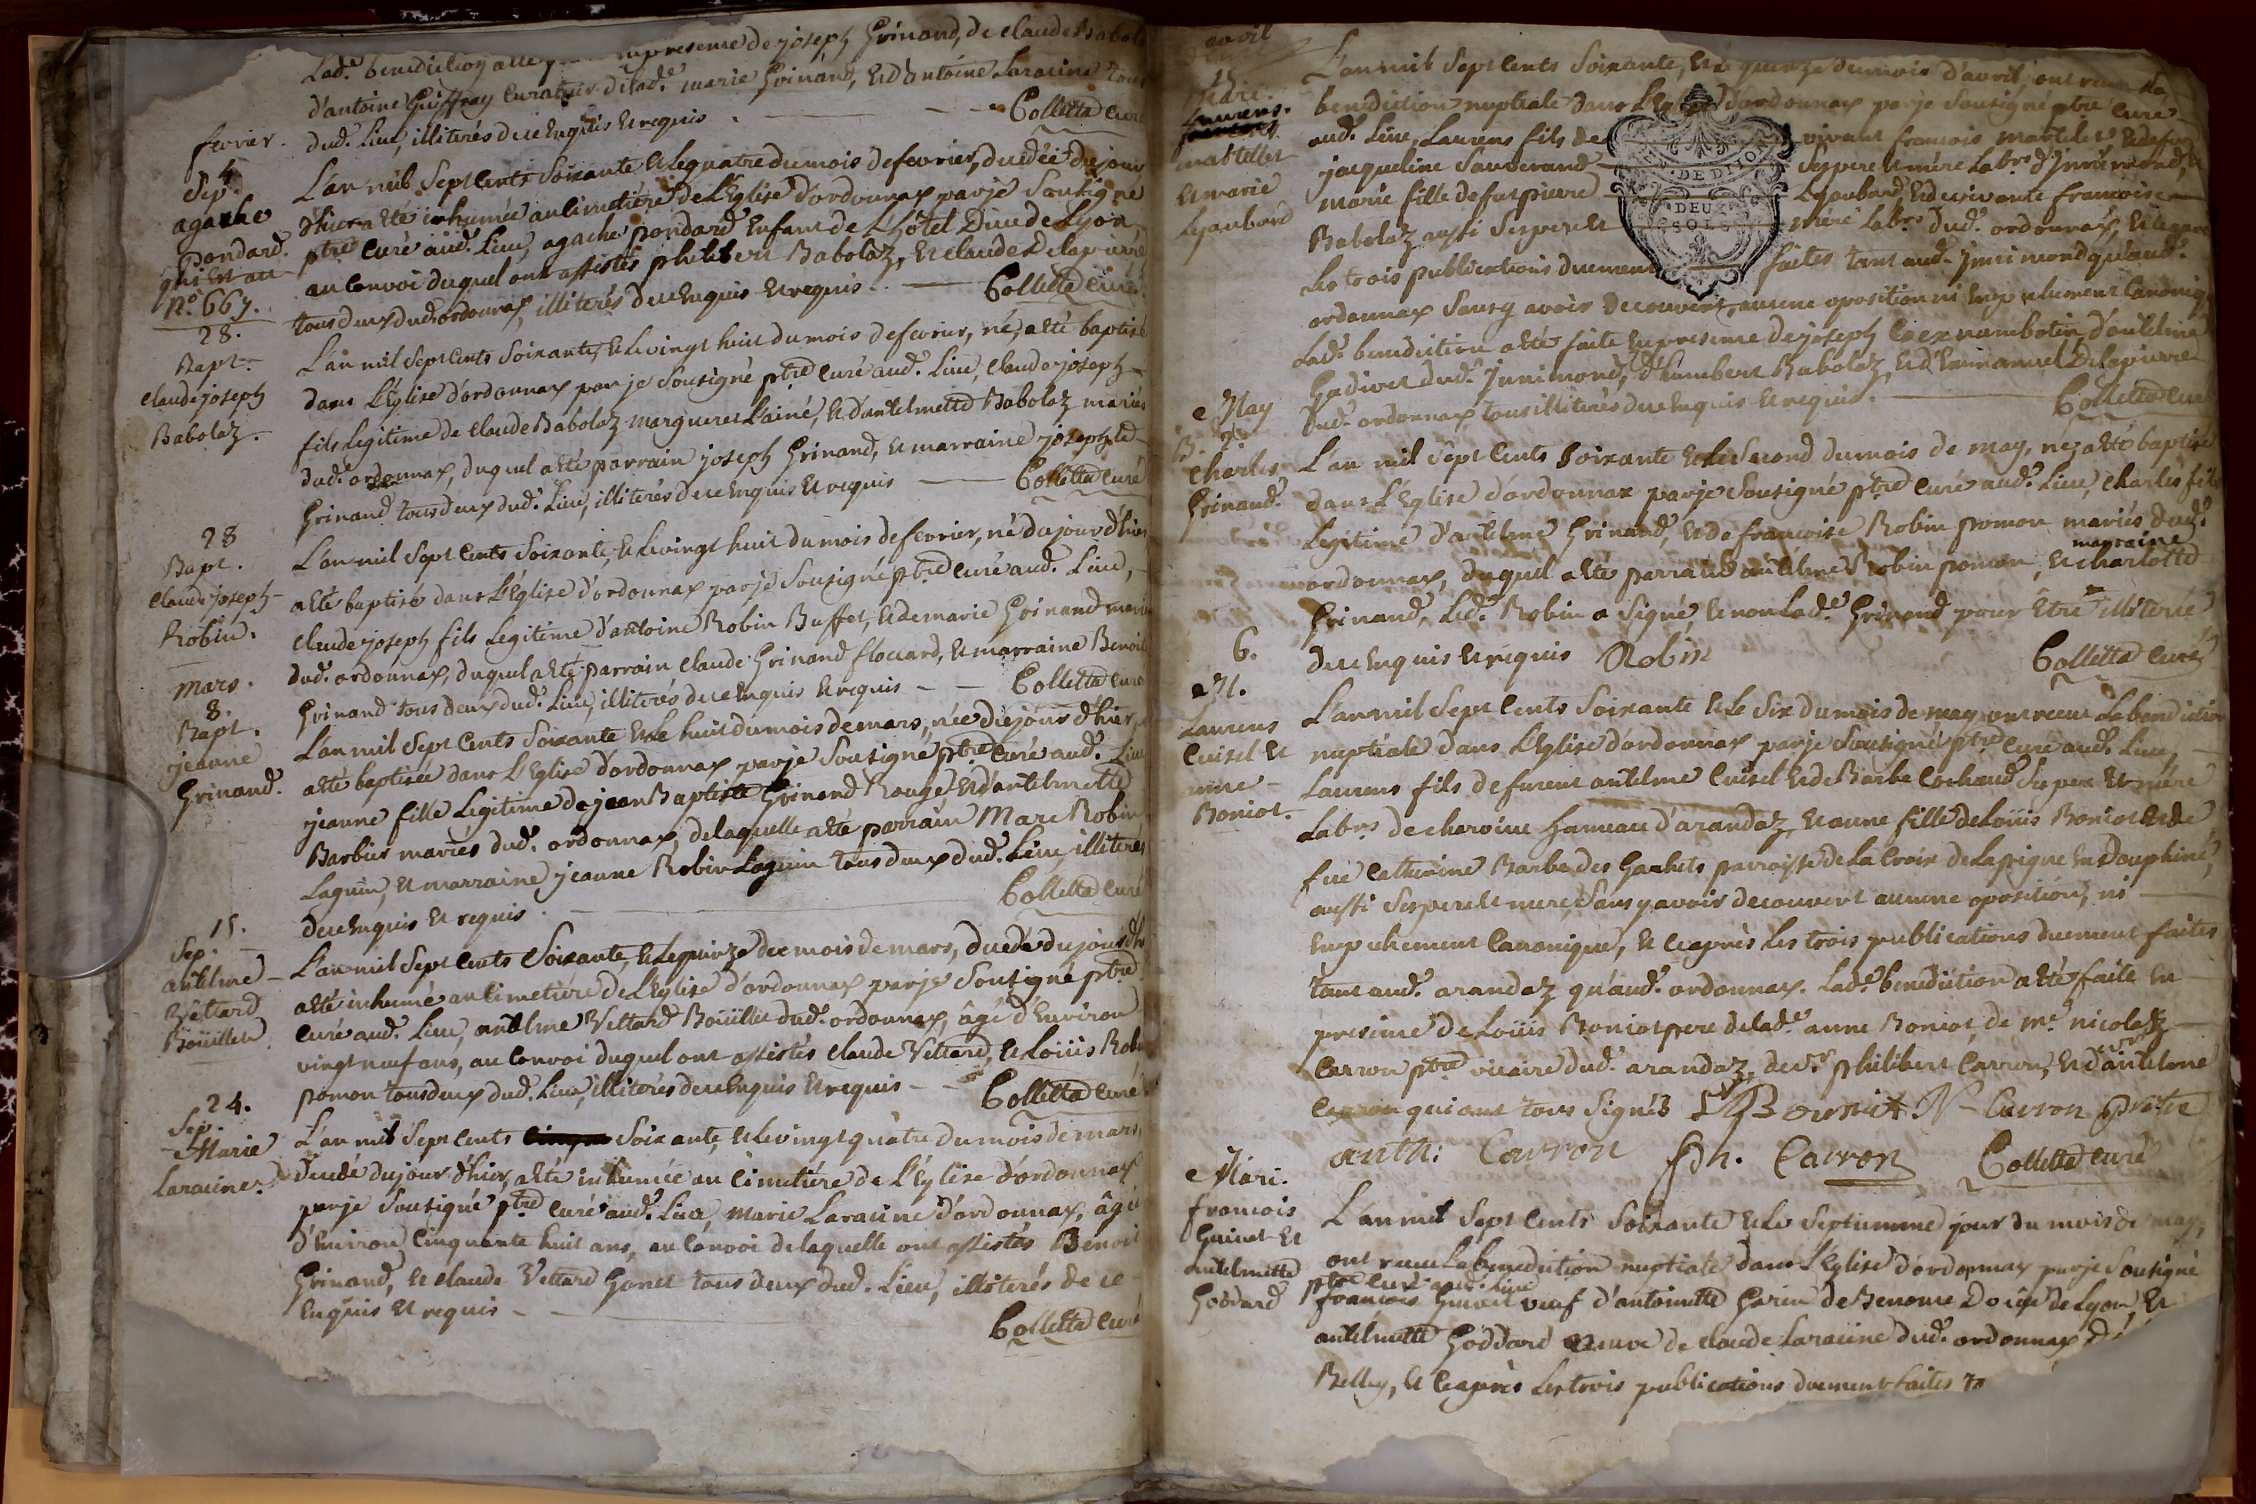 Lad.e benediction a ete en presence de joseph Grinand, de claude Babol
d'antoine Guiffray curateur de lad.e marie Grinand, et d'antoine Laracine tous
dud. Lieu, illiterés de ce enquis et requis. Colletta curé
fevrier.
4
Sep.
agathe
pondard.
qui est au
N.o 667.
L'an mil sept cents soixante et le quatre du mois de fevrier, decédée du jour
d'hier a été inhumée au cimetière de L'Eglise d'ordonnax par je soussigné
ptre curé aud. Lieu, agathe pondard enfant de L'hôtel Dieu de Lyon,
au convoi duquel ont assistés philibert Babolaz, et claude Delapierre
tous deux dud. ordonnax, illiterés de ce enquis et requis. Colletta curé
28.
Bapt.
claude joseph
Babolaz.
L'an mil sept cents soixante, et le vingt huit du mois de fevrier, né, a été baptisé
dans L'Eglise d'ordonnax par je sousigné ptre curé aud. Lieu, claude joseph
fils Legitime de claude Babolaz margueret L'ainé, et d'antelmette Babolaz mariés
dud. ordonnax, duquel a été parrain joseph Grinand, et marraine josephte
Grinand tous deux dud. Lieu, illiterés de ce enquis et requis Colletta curé
28
Bapt.
claude joseph
Robin.
L'an mil sept cents soixante, et le vingt huit du mois de fevrier, né du jour d'hier
a été baptisé dans L'Eglise d'ordonnax par je sousigné ptre curé aud. Lieu,
claude joseph fils Legitime d'antoine Robin Buffet, et de marie Grinand mariés
dud. ordonnax, duquel a été parrain claude Grinand flouard, et marraine Benoite
Grinand tous deux dud. Lieu, illiterés de ce enquis et requis Colletta curé
mars.
8.
Bapt.
jeanne
Grinand.
L'an mil sept cents soixante et le huit du mois de mars, née du jour d'hier,
a été baptisée dans L'Eglise d'ordonnax par je sousigné ptre curé aud. Lieu
jeanne fille Legitime de jean Baptiste Grinand Rouge et d'antelmette
Barbier mariés dud. ordonnax, de laquelle a été parrain Marc Robin
Laguin, et marraine jeanne Robin Laguin tous deux dud. Lieu, illiterés
de ce enquis et requis. Colletta curé
15.
Sep.
antelme
Vettard
Boüillet.
L'an mil sept cents soixante, et le quinze du mois de mars, decédé du jour d'hier
a été inhumé au cimetière de L'Eglise d'ordonnax par je sousigné ptre
curé aud. Lieu, antelme Vettard Boüillet dud. ordonnax, âgé d'environ
vingt neuf ans, au convoi duquel ont assistés claude Vettard, et Loüis Robin
pomon tous deux dud. Lieu, illiterés de ce enquis et requis Colletta curé
24.
Sep.
Marie
Laracine.
L'an mil sept cents soixante, et le vingt quatre du mois de mars,
decedée du jour d'hier, a été inhumée au cimetière de L'Église d'ordonnax
par je sousigné ptre curé aud. Lieu, marie Laracine d'ordonnax, âgée
d'environ cinquante huit ans, au convoi de laquelle ont assistés Benoit
Grinand, et claude Vettard Gonet tous deux dud. Lieu, illiterés de ce
enquis et requis
Colletta curé
avril
15.
Laurens
martellet
et marie
Lyaubard
L'an mil sept cents soixante, et le quinze du mois d'avril, ont reçu La
benediction nuptiale dans L'Eglise d'ordonnax par je sousigné ptre curé
aud. Lieu, Laurens fils de vivant francois martellet et de fue
jacqueline Sauverand ses pere et mere Lab.rs d'Innimond, et
marie fille de fut pierre Lyaubard, et de vivante francoise
Babolaz aussi ses pere et mere Lab.rs dud. ordonnax, et ce après
Les trois publications duement faites tant aud. Innimond qu'aud.
ordonnax sans y avoir decouvert aucune oposition ni empechement canonique
Lad.e benediction a été faite en presence de joseph Coex rambotin, d'antelme
Gadivet dud. Innimond, d'humbert Babolaz, et d'Emmanuel Delapierre
dud. ordonnax tous illiterés de ce enquis et requis. Colletta curé
May
B. 2.
charles
Grinand.
L'an mil sept cents soixante et le second du mois de may, né, a été baptisé
dans L'Eglise d'ordonnax par je sousigné ptre curé aud. Lieu, charles fils
Legitime d'antelme Grinand, et de francoise Robin pomon mariés dud.
ordonnax, duquel a été parrain antelme Robin pomon, et marraine charlotte
Grinand, Led. Robin a signé et non Lad.e Grinand pour être illiterée
de ce enquis et requis Robin Colletta curé
6.
M.
Laurens
Cuisel et
anne
Boniot.
L'an mil sept cents soixante et le six du mois de may ont reçu La benediction
nuptiale dans L'Eglise d'ordonnax par je sousigné ptre curé aud. Lieu,
Laurens fils de furent antelme Cuisel et de Barbe Cochaud ses pere et mere
Lab.rs de charoine hameau d'arandaz, et anne fille de Loüis Boniot et de
fue Catherine Barbe des Ganhets parroisse de La Croix de La pigne en Dauphiné,
aussi ses pere et mere, sans y avoir decouvert aucune oposition, ni
empechement canonique, et ce après Les trois publications duement faites
tant aud. arandaz qu'aud. ordonnax. Lad.e bénédiction a été faite en
presence de Loüis Boniot pere de lad.e anne Boniot, de m.e nicolas
Carron ptre vicaire dud. arandaz, de s.r philibert Carron, et d'antelme
Carron qui ont tous signés L Bouniot N. Carron prêtre
anth: Carron ph. Carron Colletta curé
Mari.
francois
Guinet et
antelmette
Goddard
L'an mil sept cents soixante et le septieme jour du mois de may,
ont reçu La benediction nuptiale dans L'Eglise d'ordonnax par je sousigné
ptre curé aud. Lieu
francois Guinet veuf d'antoinette Garin de Benonce Dioce de Lyon, et
antelmette Goddard veuve de claude Laracine dud. ordonnax
Belley, et ce après Les trois publications duement faites
GEN. DE DIJON
DEUX
SOLS